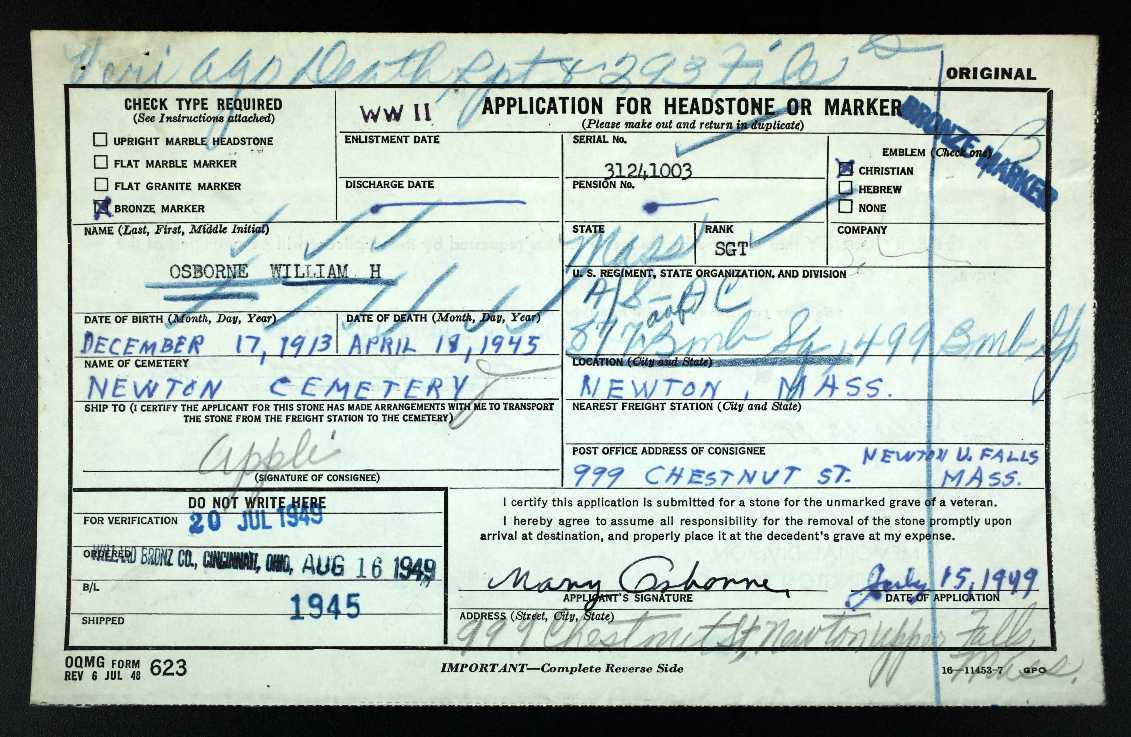 Veri Ago Death Rpt & 293 File
ORIGINAL
CHECK TYPE REQUIRED
(See Instructions attached)
UPRIGHT MARBLE HEADSTONE
FLAT MARBLE MARKER
FLAT GRANITE MARKER
BRONZE MARKER
WW II
APPLICATION FOR HEADSTONE OR MARKER
(Please make out and return in duplicate)
BRONZE MARKER
ENLISTMENT DATE
DISCHARGE DATE
SERIAL No.
31241003
PENSION No.
EMBLEM (Check one)
CHRISTIAN
HEBREW
NONE
NAME (Last, First, Middle Initial)
OSBORNE WILLIAM H
STATE
Mass
RANK
SGT
COMPANY
U. S. REGIMENT, STATE ORGANIZATION, AND DIVISION
A/S—AC
877 Bmb Sq, 499 Bmb Gp
DATE OF BIRTH (Month, Day, Year)
DECEMBER 17, 1913
DATE OF DEATH (Month, Day, Year)
APRIL 18, 1945
NAME OF CEMETERY
NEWTON CEMETERY
LOCATION (City and State)
NEWTON, MASS.
SHIP TO (I CERTIFY THE APPLICANT FOR THIS STONE HAS MADE ARRANGEMENTS WITH ME TO TRANSPORT
THE STONE FROM THE FREIGHT STATION TO THE CEMETERY)
Appli
(SIGNATURE OF CONSIGNEE)
NEAREST FREIGHT STATION (City and State)
POST OFFICE ADDRESS OF CONSIGNEE
999 CHESTNUT ST. NEWTON U. FALLS
MASS.
DO NOT WRITE HERE
FOR VERIFICATION
20 JUL 1949
ORDERED
WILLARD BRONZ CO., CINCINNATI, OHIO, AUG 16 1949
B/L
1945
SHIPPED
I certify this application is submitted for a stone for the unmarked grave of a veteran.
I hereby agree to assume all responsibility for the removal of the stone promptly upon
arrival at destination, and properly place it at the decedent's grave at my expense.
Mary Osborne
July 15, 1949
APPLICANT'S SIGNATURE
DATE OF APPLICATION
ADDRESS (Street, City, State)
999 Chestnut St, Newton Upper Falls,
Mass.
OQMG FORM 623
REV 6 JUL 48
IMPORTANT—Complete Reverse Side
16—11453-7 GPO